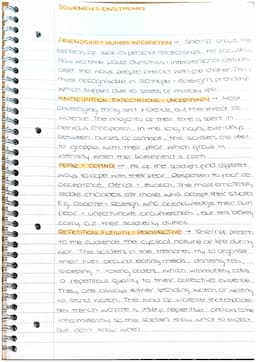 JOURNEY'S END THEMES
FRIENDSHIP + HUMAN INTERACTION → Sherriff shows the
effects of war on personal relationships. He focuses on
how wartime power dynamics + interpersonal
affect the ways people interact with one another. This is
most recognisable in Stanhope + Raleigh's friendship
which suffers due to stress of military life.
ANTICIPATION, EXPECTATIONS + UNCERTAINTY → Most
challenging thing isn't violence, but the threat of
violence. The majority of their time is spent in
nervous anticipation. In the long hours, even days
between bursts of conflict, the soldiers are left
to grapple with their fear which grows in
intensity when the battlefield is calm.
FEAR + COPING → All of the soldiers find different
ways to cope with their fear. Responses to fear are
acceptance, denial + evasion. The most emotionally
stable characters are those who accept their situation
E.g. Osborne + Raleigh who acknowledge their own
fear + unfortunate circumstances, but still bravely
carry out their soldierly duties.
REPETITION, FUTILITY + PERSPECTIVE → Sherriff presents
to the audience the cyclical nature of life during
war. The soldiers in the trenches try to organise
their lives around eating meals, drinking tea,
sleeping + taking orders, which ultimately adds
a repetitious quality to their collective existence.
They are always either standing watch or waiting
to stand watch. The kind of violence that characterises
trench warfare is itself repetitive, and
intermittently, so the soldiers know what to expect
but don't know when.